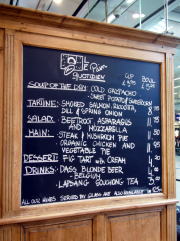 Le Pain
QUOTIDIEN
CUP BOWL
SOUP OF THE DAY: COLD GAZPACHO
SWEET POTATO &
TARTINE: SMOKED SALMON, RICOTTA,
DILL & SPRING ONION
SALAD: BEETROOT, ASPARAGUS
AND MOZZARELLA
MAIN: STEAK & MUSHROOM PIE
ORGANIC CHICKEN AND
VEGETABLE PIE
DESSERT: FIG TART WITH CREAM
DRINKS: DASS BLONDE BEER
- BELGIUM
LAPSANG SOUCHONG TEA
ALL OUR WINES SERVED BY GLASS ARE ALSO AVAILABLE IN